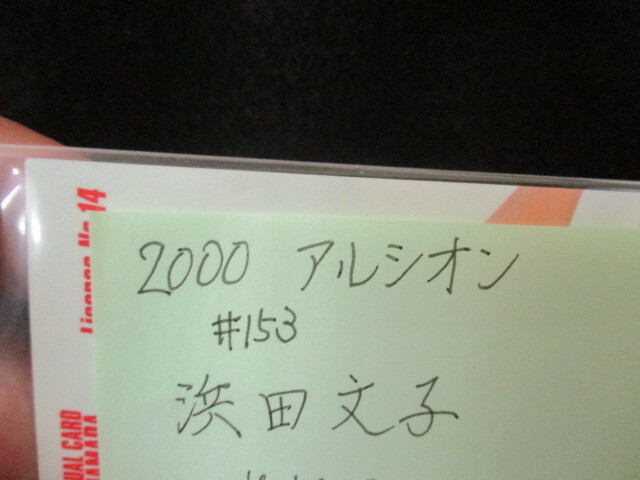 2000 アルシオン
#153
浜田文子
License No.14
UAL CARD
AMADA